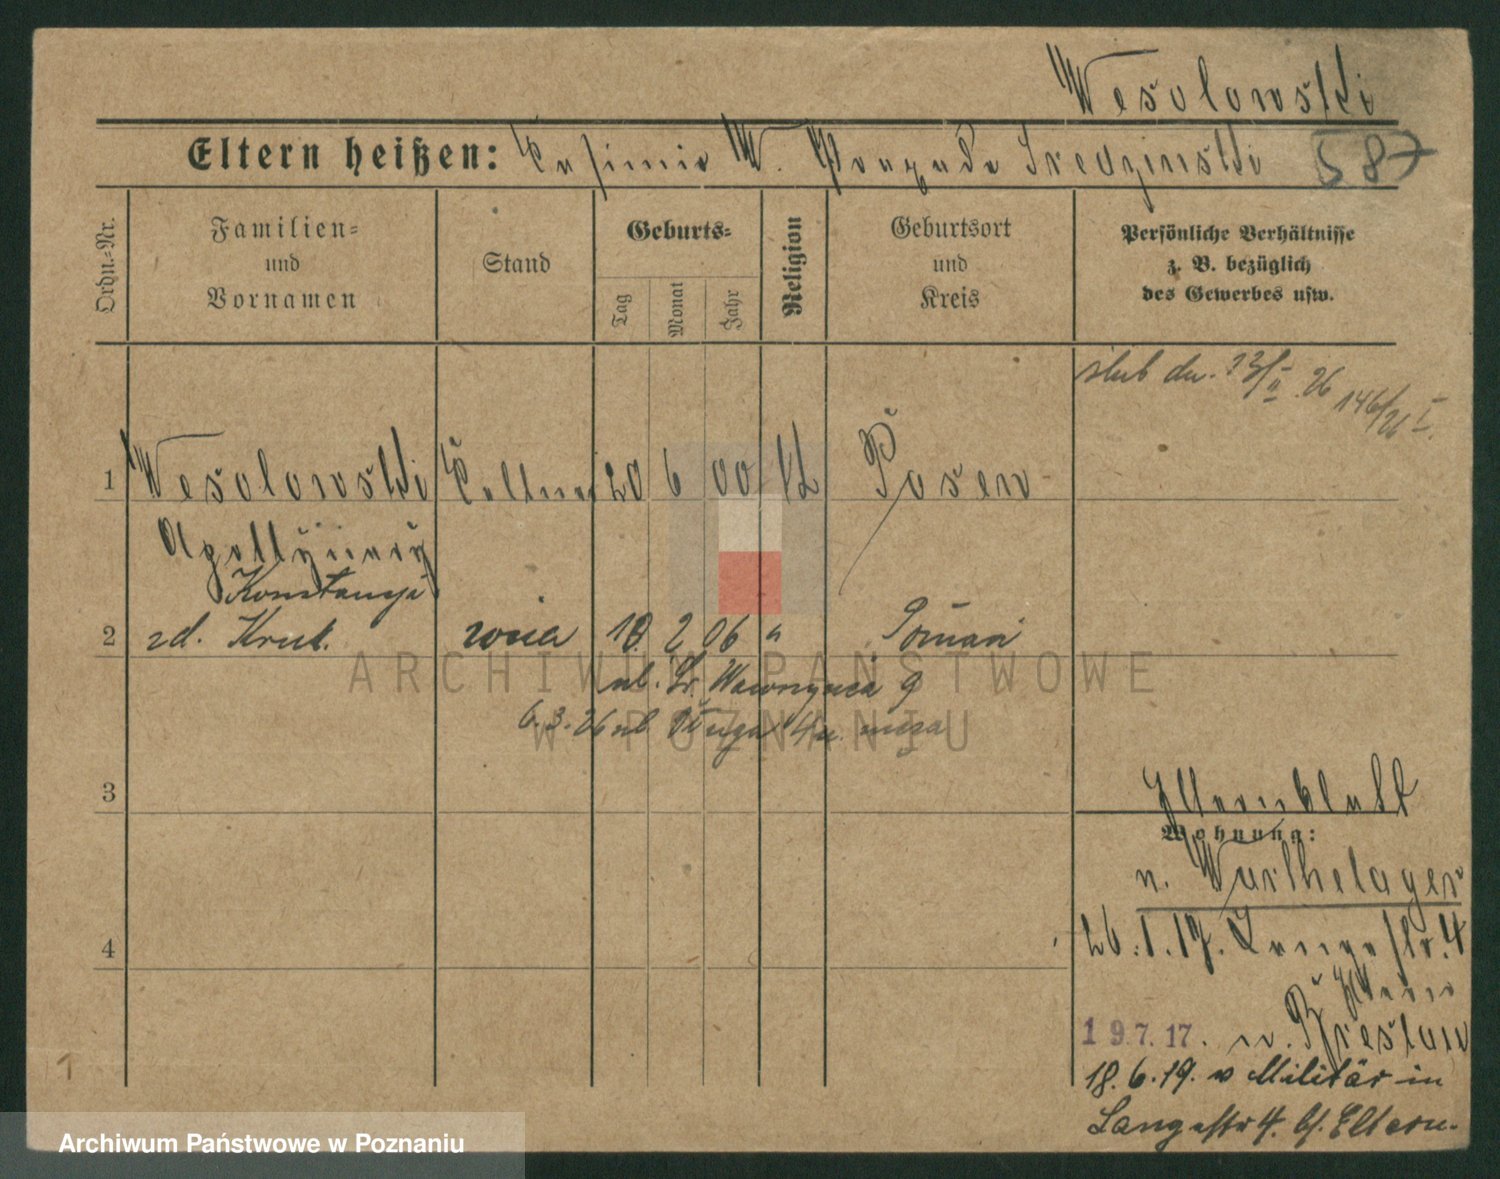 Wesolowski
Eltern heißen: Casimir W. Sredzinski 587
Ordn.-Nr.
Familien-
und
Vornamen
Stand
Geburts-
Tag
Monat
Jahr
Religion
Geburtsort
und
Kreis
Persönliche Verhältnisse
z. B. bezüglich
des Gewerbes usw.
ślub dn. 23/II 26
146/26 I.
1 Wesolowski Kellner 20 6 00 kt Posen
Apollÿnarÿ
Konstancja
2 zd. Kruk. żona 18. 2 06 " Poznań
ul. Św. Wawrzyńca 9
6.3.26 ul. Długa 4 u.
3
Elternblatt
Wohnung:
n. Warthelager
26.1.17. Langestr. 4
Eltern
4
19.7.17. n. Breslau
18.6.19. v Militär in
Langestr 4. b/. Eltern.
1
ARCHIWUM PAŃSTWOWE
W POZNANIU
Archiwum Państwowe w Poznaniu